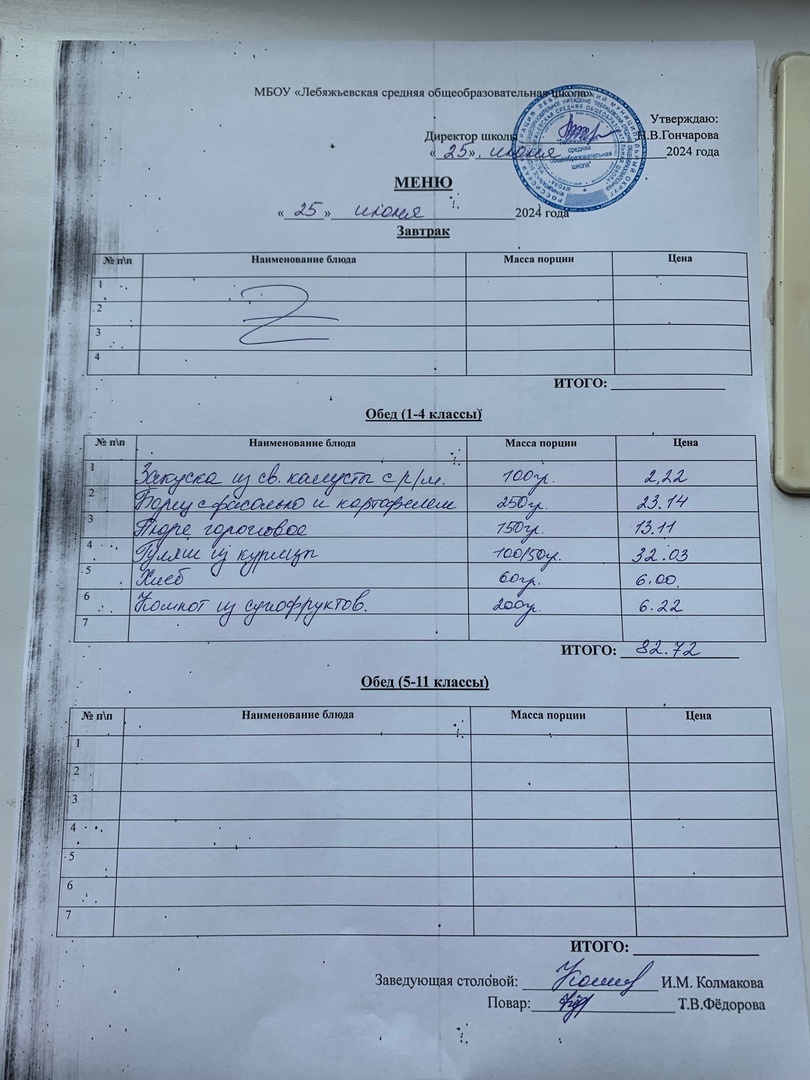 МБОУ «Лебяжьевская средняя общеобразовательная школа»
Утверждаю:
Директор школы Н.В.Гончарова
«25» июня 2024 года
МЕНЮ
«25» июня 2024 года
Завтрак
№ п\п Наименование блюда Масса порции Цена
1
2
3
4
ИТОГО:
Обед (1-4 классы)
№ п\п Наименование блюда Масса порции Цена
1 Закуска из св. капусты с р/м. 100гр. 2,22
2 Борщ с фасолью и картофелем 250гр. 23.14
3 Пюре гороховое 150гр. 13.11
4 Гуляш из курицы 100/50гр. 32.03
5 Хлеб 60гр. 6.00.
6 Компот из сухофруктов. 200гр. 6.22
7
ИТОГО: 82.72
Обед (5-11 классы)
№ п\п Наименование блюда Масса порции Цена
1
2
3
4
5
6
7
ИТОГО:
Заведующая столовой: И.М. Колмакова
Повар: Т.В.Фёдорова